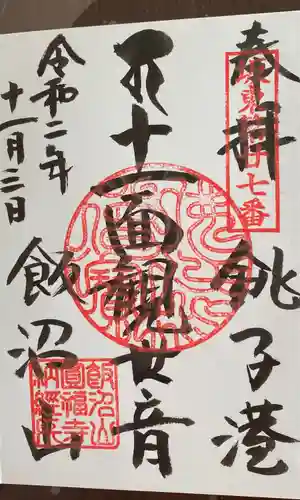 奉拝
銚子港
坂東第廿七番
十一面観世音
飯沼山
令和二年
十一月三日
飯沼山
圓福寺
納経印